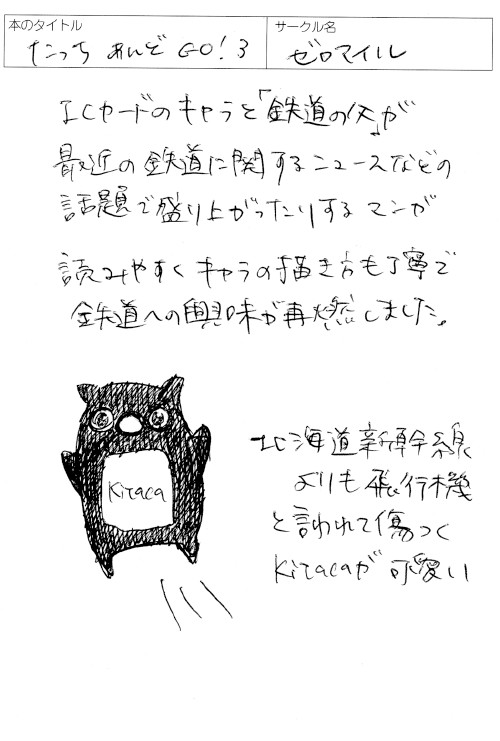 本のタイトル
たっち あんど GO! 3
サークル名
ゼロマイル
ICカードのキャラと「鉄道の父」が
最近の鉄道に関するニュースなどの
話題で盛り上がったりするマンガ
読みやすくキャラの描き方も丁寧で
鉄道への興味が再燃しました。
Kitaca
北海道新幹線
よりも飛行機
と言われて傷つく
Kitacaが可愛い